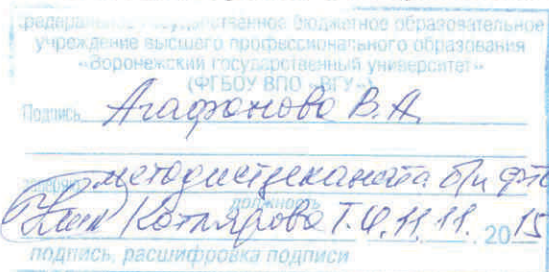 Федеральное государственное бюджетное образовательное
учреждение высшего профессионального образования
«Воронежский государственный университет»
(ФГБОУ ВПО «ВГУ»)
Подпись Агафонова В.А.
заверяю методист деканата
должность
Котлярова Т. 11.11.2015
подпись, расшифровка подписи